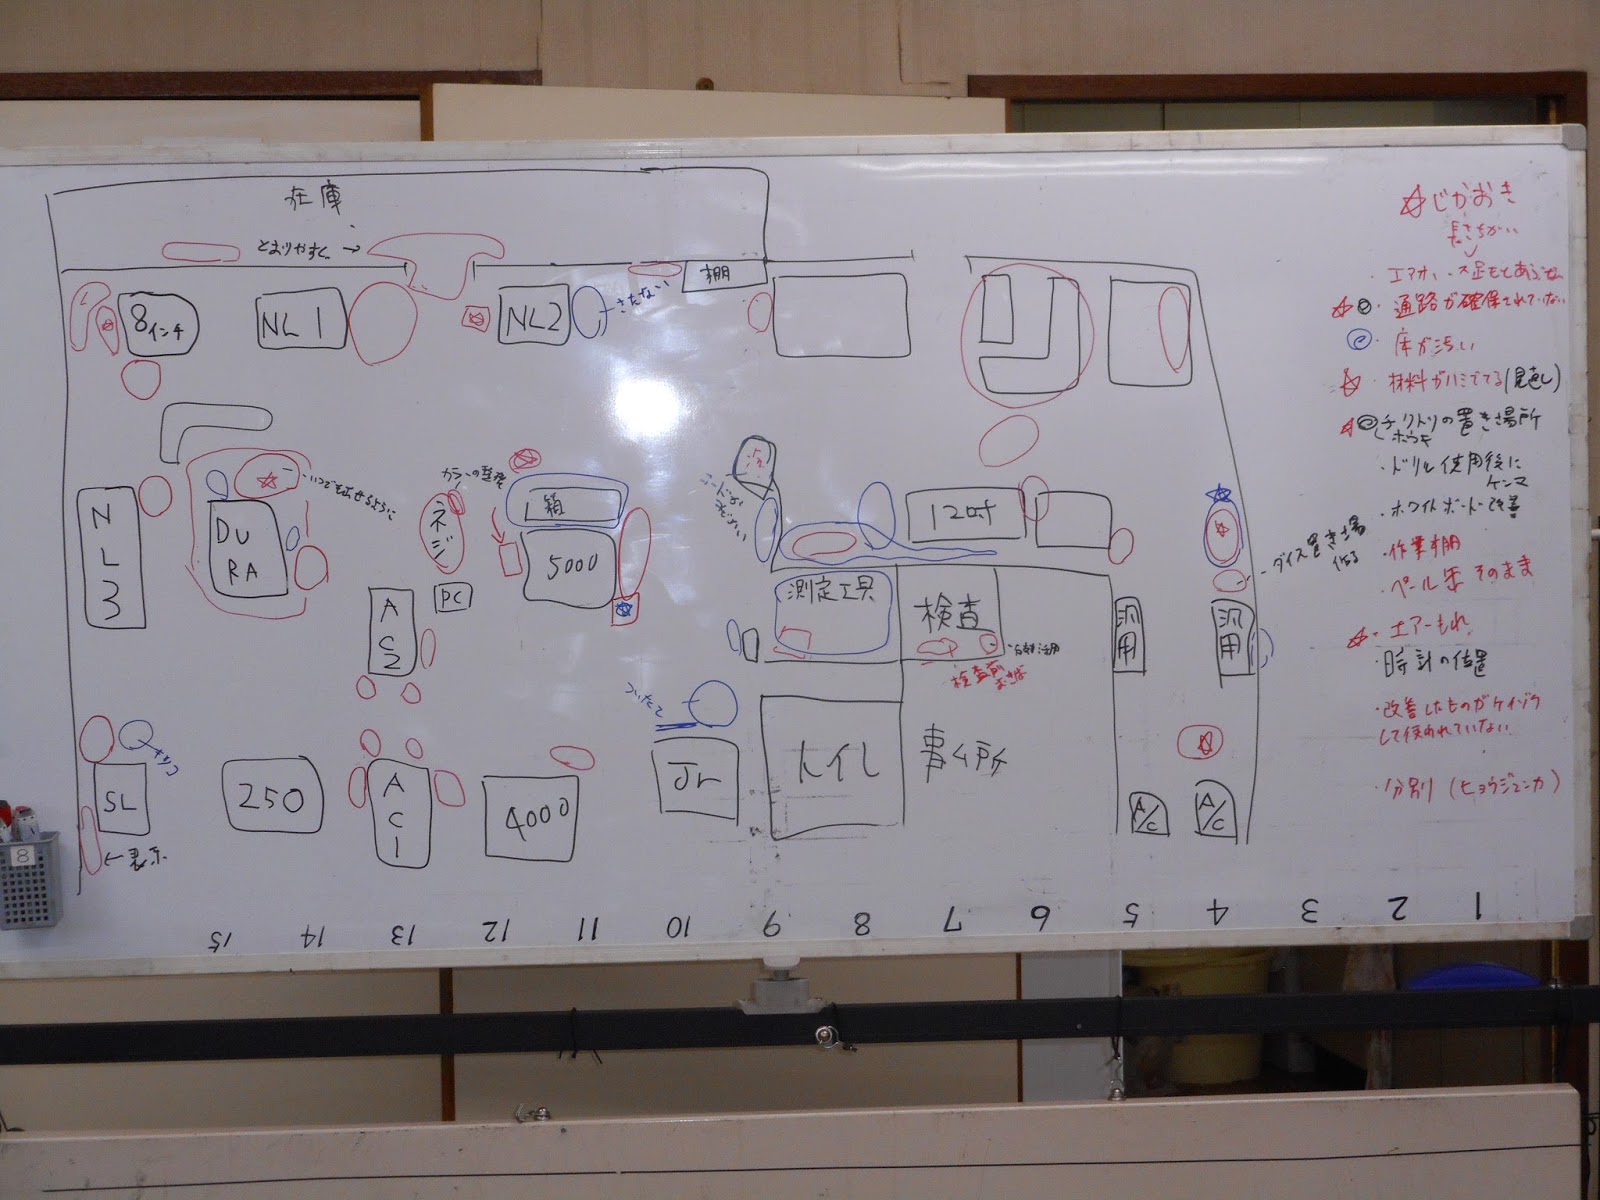 在庫
とおりやすく→
棚
8インチ
NL1
NL2
きたない
NL3
DURA
いつでも出せるように
カラーの整理
ネジ
箱
5000
PC
AC2
12吋
測定工具
検査
検査前
汎用
汎用
ダイス置き場
作る
ついたて
SL
←表示
250
AC1
4000
Jr
トイレ
事ム所
A/C
A/C
☆じかおき
長さちがい
・通路が確保されていない
・床が汚い
・材料がハミでてる(見直し)
チリトリの置き場所
ホウキ
・ドリル使用後に
ケンマ
・ホワイトボードで改善
・作業棚
・ペール缶 そのまま
・エアーもれ
・時計の位置
・改善したものがケイゾク
して使われていない
・分別
15 14 13 12 11 10 9 8 7 6 5 4 3 2 1
8